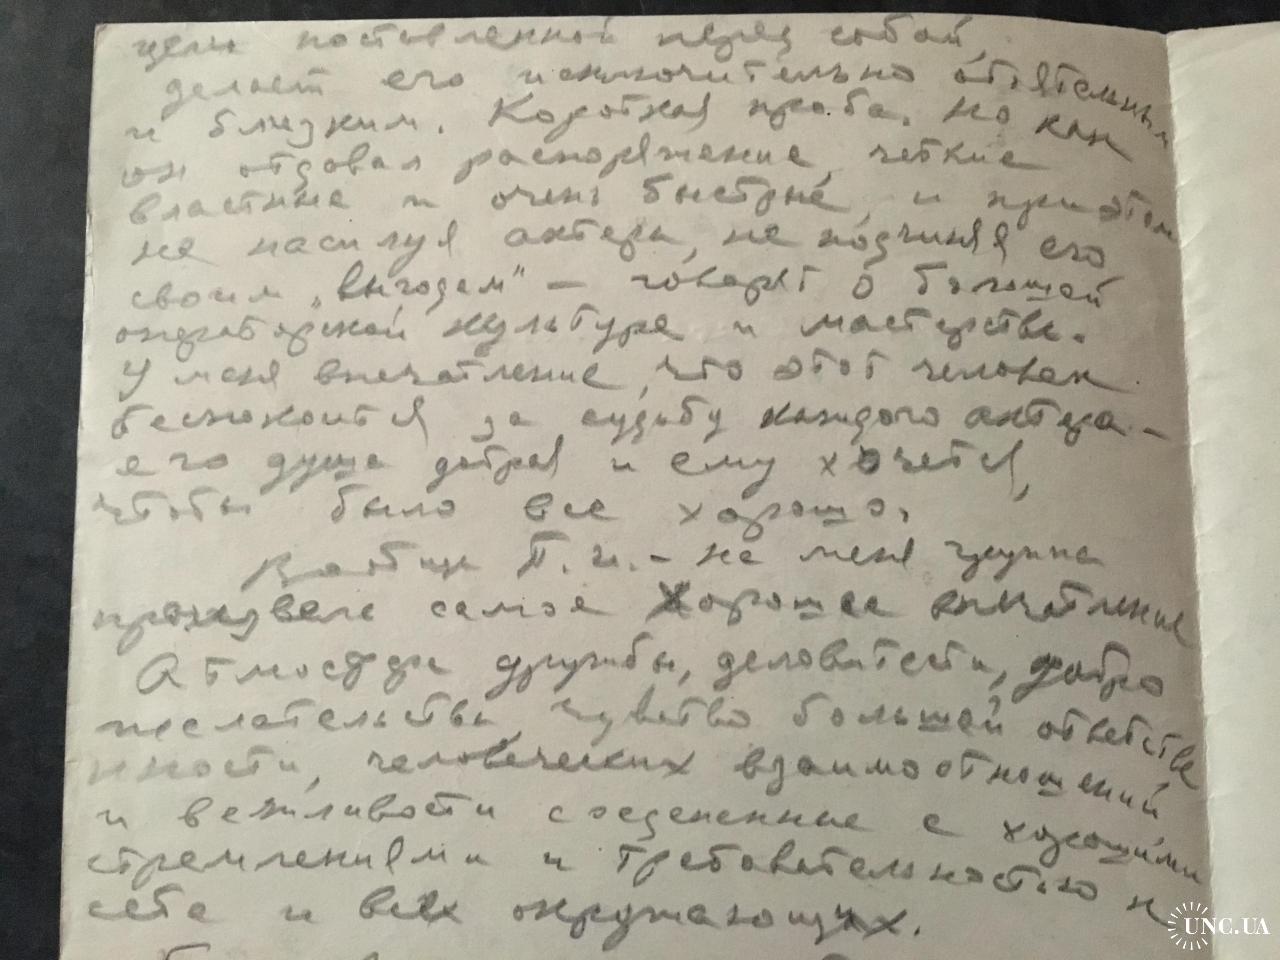 цели поставленной перед собой,
делает его исключительно обятельным
и близким. Короткая проба. Но как
он отдавал распоряжение, четкие
властные и очень быстрые, и при этом
не насилуя актера, не подчиняя его
своим „выгодам" – говорят о большой
операторской культуре и мастерстве.
У меня впечатление, что этот человек
беспокоится за судьбу каждого актера –
его душа добрая и ему хочется,
чтобы было все хорошо.
Вообще П.И. – на меня группа
произвела самое хорошее впечатление
Атмосфера дружбы, деловитости, добро
желательства, чувство большой ответстве
нности, человеческих взаимоотношений
и вежливости соедененные с хорошими
стремлениями и требовательностью к
себе и всех окружающих.
UNC.UA